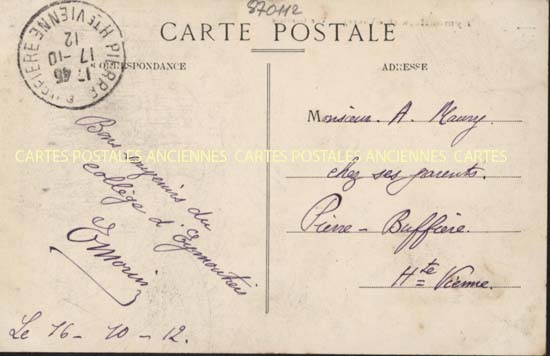 870112
CARTE POSTALE
PIERRE-BUFFIERE
17 45
17-10
12
HTE VIENNE
CORRESPONDANCE
ADRESSE
Bons souvenirs du
collège d'Eymoutiers
EMorin
Le 16-10-12.
Monsieur. A. Maury
chez ses parents.
Pierre-Buffière.
Hte Vienne.
CARTES POSTALES ANCIENNES CARTES POSTALES ANCIENNES CARTES POSTALES